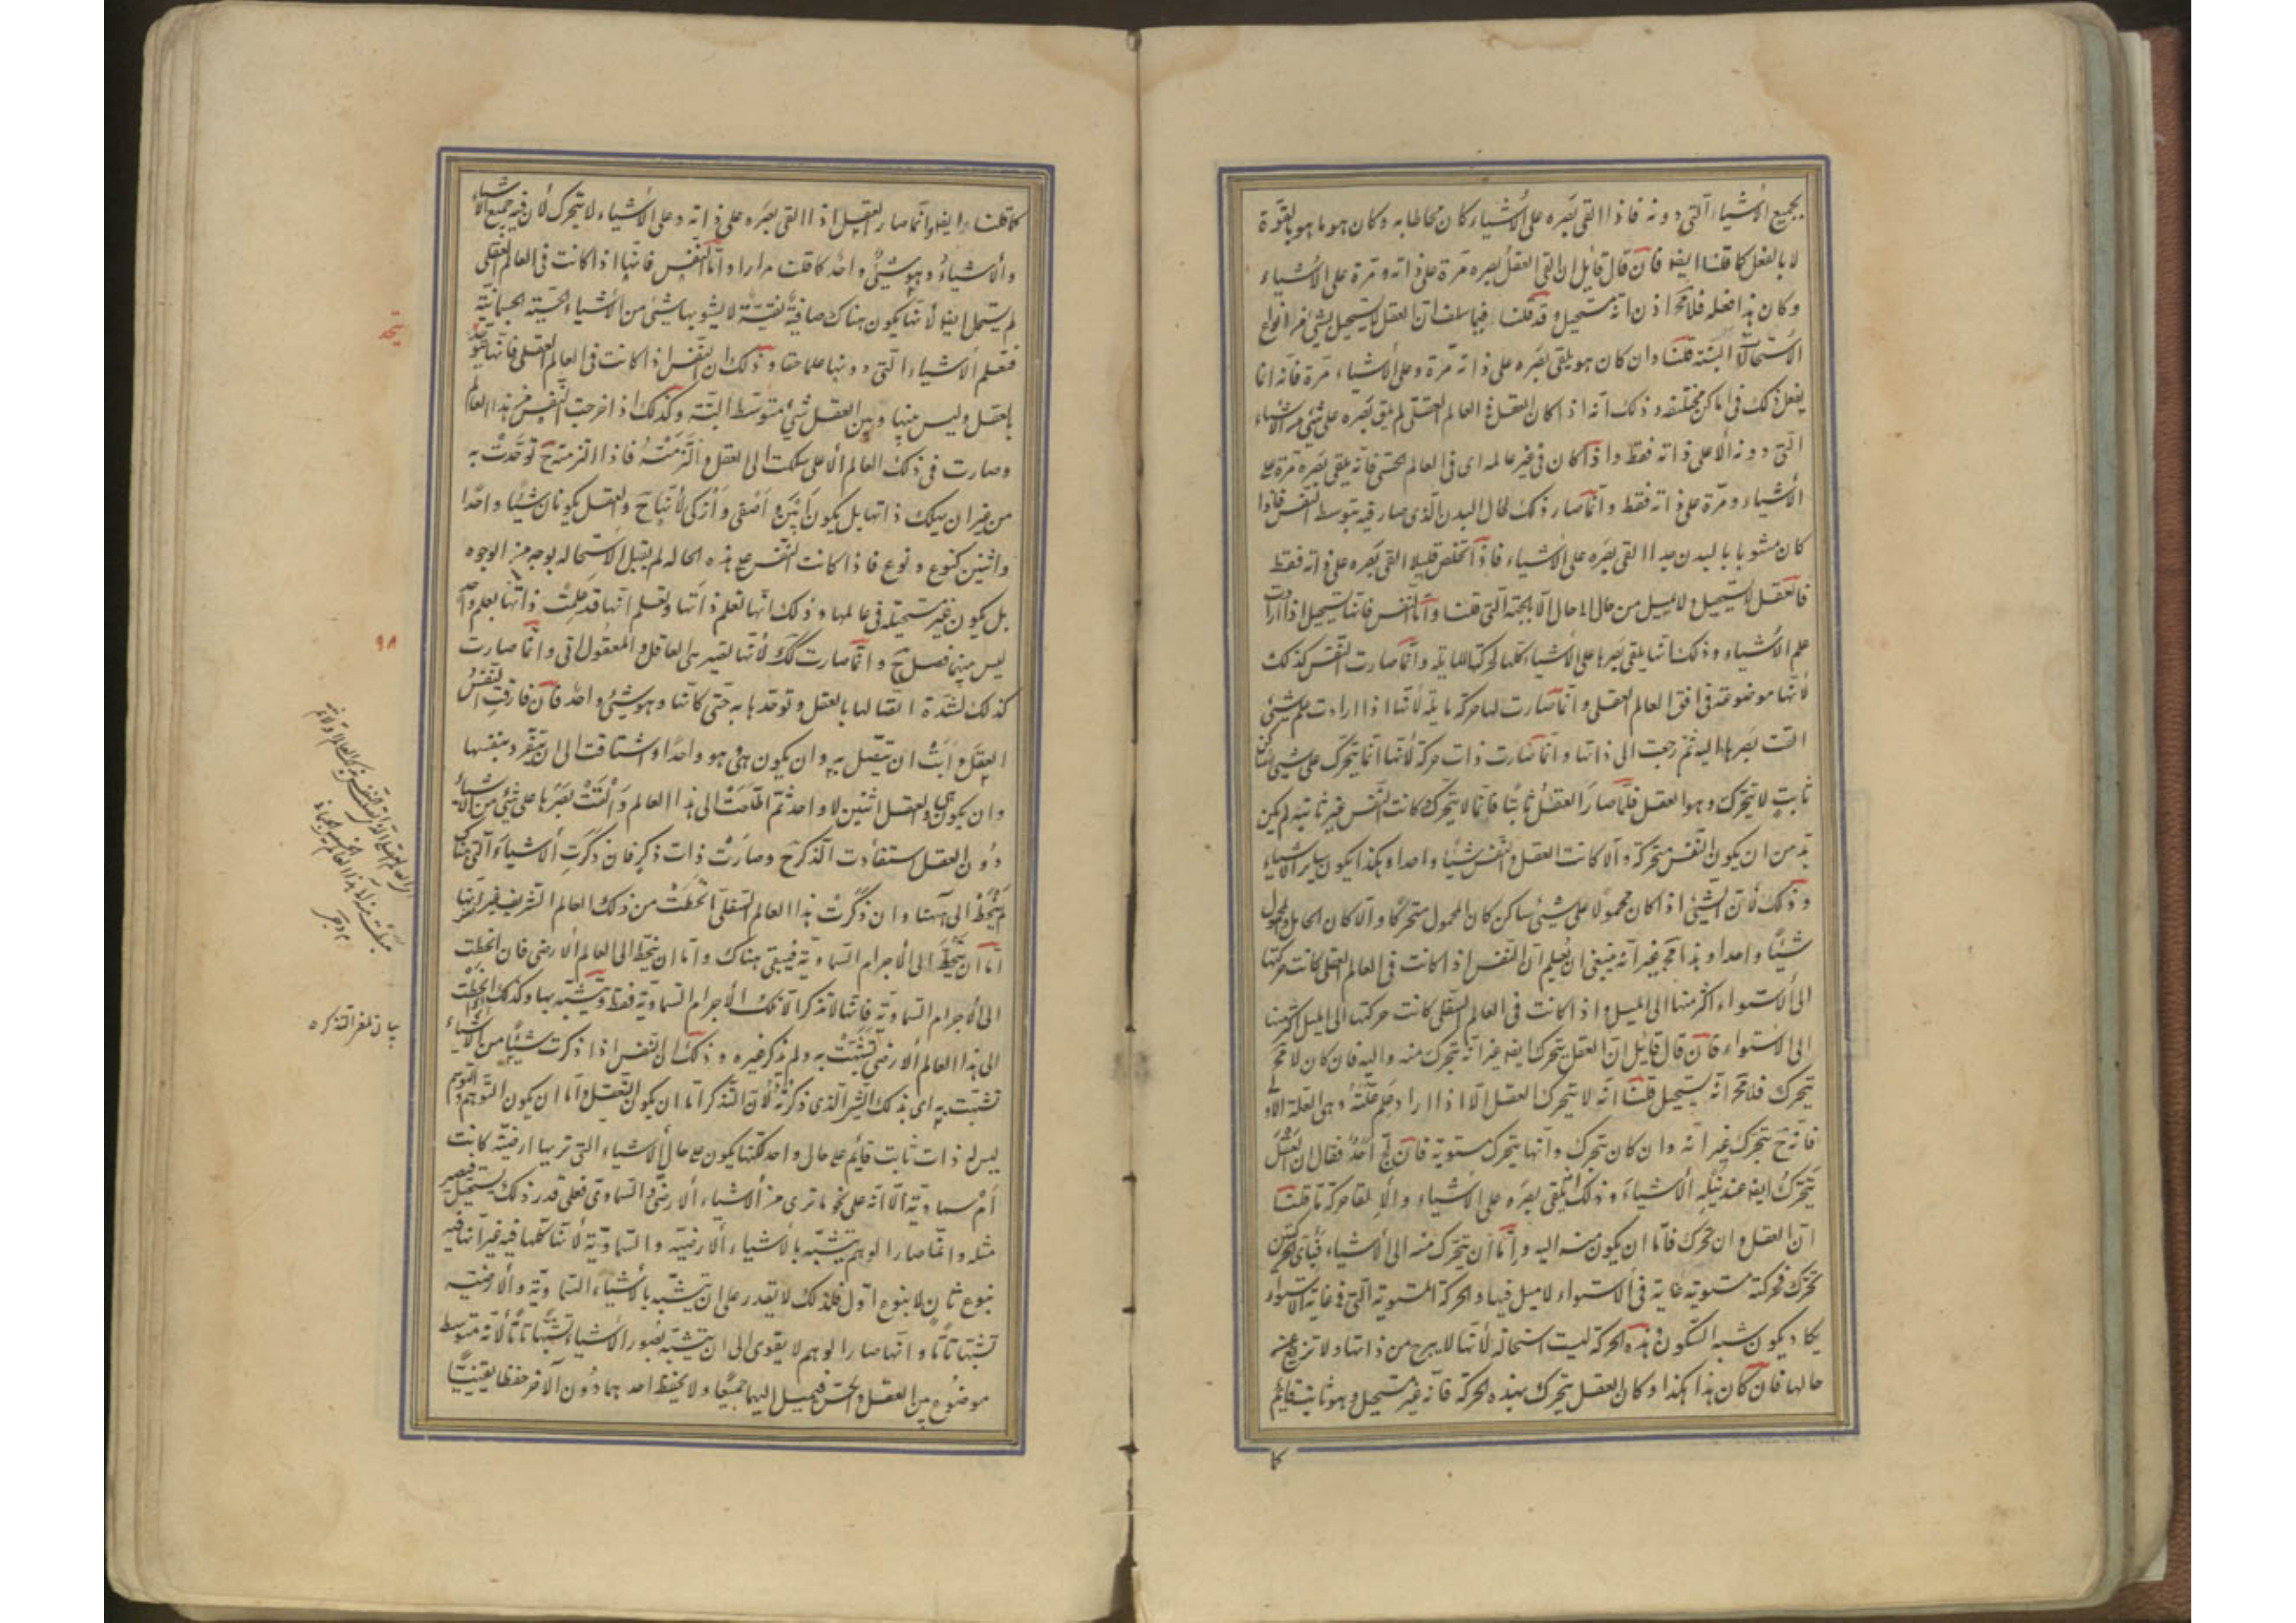 بجميع الأشياء التى دونه فاذا القى بصره على الأشياء كان محاطا به وكان هو ما هو بالقوة
لا بالفعل كما قلنا ايضا فان قال قايل ان القى العقل بصره مرة على ذاته ومرة على الأشياء
وكان هذا فعله فلا مح اذن انه مستحيل وقد قلنا فيما سلف ان العقل لا يستحيل بشئ من انواع
الاستحالات البتة قلنا وان كان هو يلقى بصره على ذاته مرة وعلى الأشياء مرة فانه انما
يفعل ذلك فى اماكن مختلفه وذلك انه اذا كان العقل فى العالم العقلى لم يلق بصره على شئ من الأشياء
التى دونه الا على ذاته فقط واذا كان فى غير عالمه اى فى العالم الحسى فانه يلقى بصره مرة على
الأشياء ومرة على ذاته فقط وانما صار ذلك لحال البدن الذى صار فيه بتوسط النفس فاذا
كان مشوبا بالبدن جدا القى بصره على الأشياء فاذا تخلص قليلا القى بصره على ذاته فقط
فالعقل لا يستحيل ولا يميل من حال الى حال الا بالجهة التى قلنا واما النفس فانها تستحيل اذا ارادت
علم الأشياء وذلك انها يلقى بصرها على الأشياء كلها لحركتها المايلة وانما صارت النفس كذلك
لأنها موضوعة فى افق العالم العقلى وانما صارت لها حركة مايلة لأنها اذا ارادت علم شئ
القت بصرها اليه ثم رجعت الى ذاتها وانما صارت ذات حركة لأنها انما يتحرك على شئ ساكن
ثابت لا يتحرك وهو العقل فلما صار العقل ثابتا قائما لا يتحرك كانت النفس غير ثابتة لم يكن
بد من ان يكون النفس متحركة والا كانت العقل والنفس شيئا واحدا وهكذا يكون ساير الأشياء
وذلك لأن الشئ اذا كان محمولا على شئ ساكن كان المحمول متحركا والا كان الحامل والمحمول
شيئا واحدا وهذا مح غير انه ينبغى ان يعلم ان النفس اذا كانت فى العالم العقلى كانت حركتها
الى الاستواء اكثر منها الى الميل واذا كانت فى العالم السفلى كانت حركتها الى الميل اكثر منها
الى الاستواء فان قال قايل ان العقل يتحرك ايضا غير انه يتحرك منه واليه فان كان لا مح
يتحرك فلا مح انه يستحيل قلنا انه لا يتحرك العقل الا اذا اراد علم علته وهى العلة الاولى
فانه ح يتحرك غير انه وان كان يتحرك وانها يتحرك مستوية فان لج احد فقال ان العقل
يتحرك ايضا عند نيله الأشياء وذلك انه يلقى بصره على الأشياء والإلقا حركة ما قلنا
ان العقل وان تحرك فاما ان يكون منه اليه واما ان يتحرك منه الى الأشياء فبأى الحركتين
تحرك فحركته مستوية غاية فى الاستواء لا ميل فيها والحركة المستوية التى فى غاية الاستواء
يكاد يكون شبه السكون وهذه الحركة ليست استحالة لأنها لا يبرح من ذاتها ولا تزيغ عن
حالها فان كان هذا هكذا وكان العقل يتحرك بهذه الحركة فانه غير مستحيل وهو ثابت قايم
كما
كما قلنا ايضا وانما صار العقل اذا القى بصره على ذاته وعلى الأشياء لا يتحرك لأن فيه جميع الأشياء
والأشياء وهو شئ واحد كما قلت مرارا واما النفس فانها اذا كانت فى العالم العقلى
لم يستحل ايضا لأنها يكون هناك صافية نقية لا يشوبها شئ من الأشياء الحسية الجسمانية
فتعلم الأشياء التى دونها علما حقا وذلك ان النفس اذا كانت فى العالم العقلى فانها تتوحد
بالعقل وليس بينها وبين العقل شئ متوسط البتة وكذلك اذا خرجت النفس من هذا العالم
وصارت فى ذلك العالم الأعلى سلكت الى العقل والتزمته فاذا التزمته ح توحدت به
من غير ان يهلك ذاتها بل يكون ابين واصفى وازكى لأنها ح والعقل يكونان شيئا واحدا
واثنين كنوع ونوع فاذا كانت النفس على هذه الحالة لم يقبل الاستحالة بوجه من الوجوه
بل يكون غير مستحيلة فى عالمها وذلك انها تعلم ذاتها وتعلم انها قد علمت ذاتها بعلم واحد
ليس بينهما فصل ح وانما صارت كك لأنها تصير هى العاقل والمعقول وانما صارت
كذلك لشدة اتصالها بالعقل وتوحدها به حتى كأنها وهو شئ واحد فان فارقت النفس
العقل وابت ان يتصل به وان يكون هى هو واحدا واشتاقت الى ان ينفرد بنفسها
وان يكون هى والعقل اثنين لا واحد ثم اطلعت الى هذا العالم والقت بصرها على شئ من الأشياء
دون العقل استفادت الذكر ح وصارت ذات ذكر فان ذكرت الأشياء التى هناك
لم ينحط الى ههنا وان ذكرت هذا العالم السفلى انحطت من ذلك العالم الشريف غير انها
اما ان ينحط الى الأجرام السماوية فيبقى هناك واما ان ينحط الى العالم الأرضى فان انحطت
الى الأجرام السماوية فانها لا تذكر الا تلك الأجرام السماوية فقط وتتشبه بها وكذلك اذا انحطت
الى هذا العالم الأرضى تشبهت به ولم يذكر غيره وذلك ان النفس اذا ذكرت شيئا من الأشياء
تشبهت به اى بذلك الشئ الذى ذكرته لأن التذكر اما ان يكون التعقل واما ان يكون التوهم والتوهم
ليس له ذات ثابت قايم على حال واحد لكنها يكون على حال الأشياء التى تريها ارضية كانت
ام سماوية الا انه على نحو ما ترى من الأشياء الأرضى والسماوى فعلى قدر ذلك يستحيل فيصير
مثله وانما صار الوهم يتشبه بالأشياء الأرضية والسماوية لأنها كلها فيه غير انها فيه
بنوع ثان لا بنوع اول فلذلك لا يقدر على ان يتشبه بالأشياء السماوية والأرضية
تشبها تاما وانما صار الوهم لا يقوى الى ان يتشبه بصور الأشياء تشبها تاما لأنه متوسط
موضوع بين العقل والحس فيميل اليهما جميعا ولا يحفظ احدهما دون الآخر حفظا يقينيا
يتحد
٩٨
بيان لمعنى التذكر